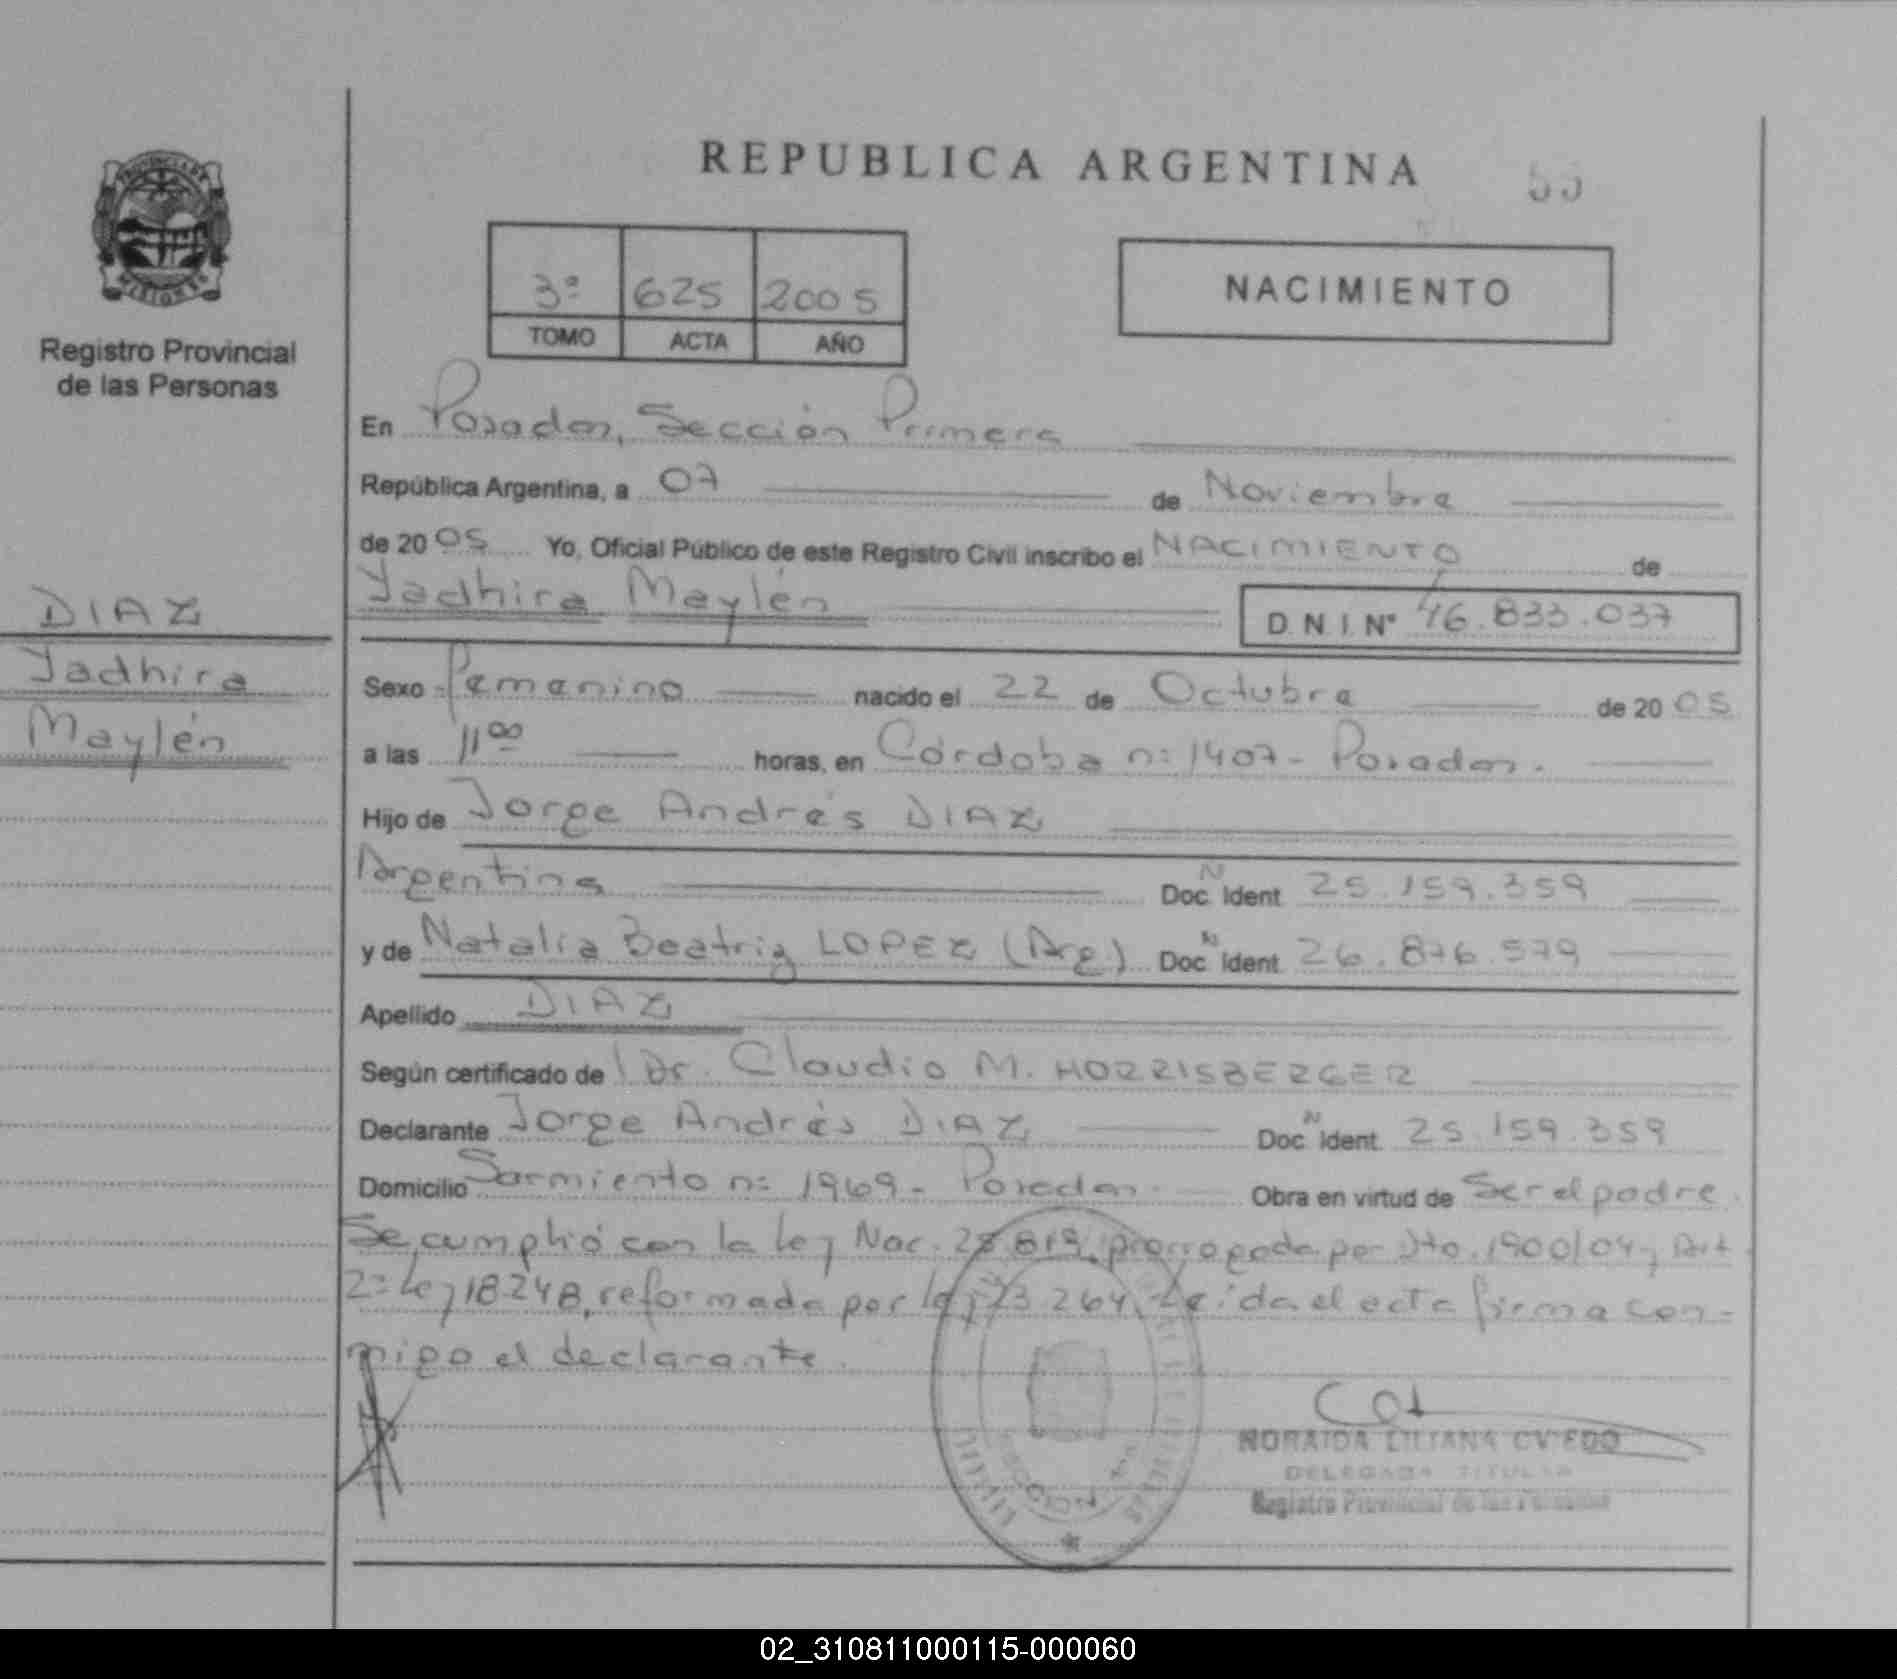 REPUBLICA ARGENTINA
55
PROVINCIA DE
MISIONES
Registro Provincial
de las Personas
3º 625 2005
TOMO ACTA AÑO
NACIMIENTO
En Posadas, Sección Primera
República Argentina, a 07 de Noviembre
de 2005 Yo, Oficial Público de este Registro Civil inscribo el NACIMIENTO de
Yadhira Maylén D.N.I. Nº 46.833.037
DIAZ
Yadhira
Maylén
Sexo Femenino nacido el 22 de Octubre de 2005
a las 11 00 horas, en Córdoba nº 1407 - Posadas.
Hijo de Jorge Andrés DIAZ
Argentina Doc. N Ident. 25.159.359
y de Natalia Beatriz LOPEZ (Arg.) Doc. N Ident. 26.876.579
Apellido DIAZ
Según certificado de Dr. Claudio M. HORRISBERGER
Declarante Jorge Andrés DIAZ Doc. N Ident. 25.159.359
Domicilio Sarmiento nº 1969 - Posadas. Obra en virtud de Ser el padre.
Se cumplió con la Ley Nac. 25.819, prorrogada por Dto. 1900/04, Art.
2º Ley 18.248, reformada por ley 23.264. Leída el acta firma con-
migo el declarante.
NORAIDA LILIANA OVIEDO
DELEGADA TITULAR
Registro Provincial de las Personas
02_310811000115-000060